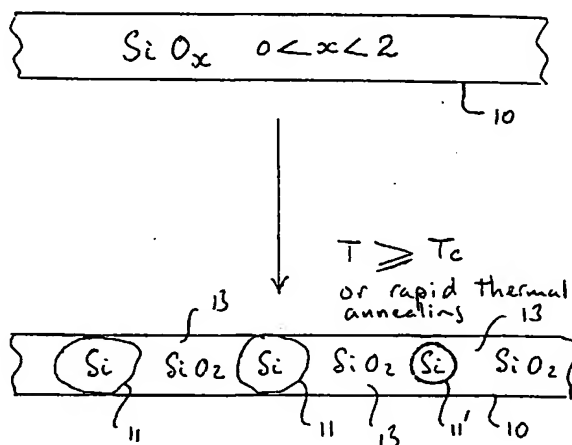 SiOx 0<x<2
10
T ⩾ Tc
or rapid thermal
annealing
13 13
Si SiO2 Si SiO2 Si SiO2
11 11 13 11' 10